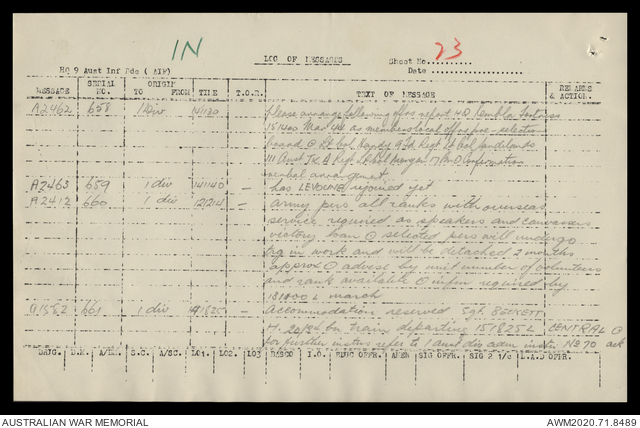 IN
LOG OF MESSAGES Sheet No......... 23
HQ 9 Aust Inf Bde (AIF) Date ....................
MESSAGE SERIAL NO. ORIGIN TO FROM TIME T.O.R. TEXT OF MESSAGE REMARKS & ACTION.
A2462 658 1 Div 141130 Please arrange following offrs report HQ Kembla Fortress
151400 Mar 44 as members local offrs pre-selection
board
111 Aust Tk A Regt Lt Col Morgan Confirmation
verbal arrangement
A2463 659 1 div 141140 — has rejoined yet
A2412 660 1 div 121214 — army pers all ranks with overseas
service required as speakers and canvassers
victory loan selected pers will undergo
trg in work and will be detached 2 months
approx advise by unit number of volunteers
and rank available infm required by
181800 L march
661 1 div 141825 — Accommodation reserved Sgt. BECKETT
H. Bn Train departing 151825L CENTRAL
for further instns refer to 1 aust div adm instn No 70 ack
S.C. A/SC. LO1. LO2. LO3 I.O. SIG OFFR. L.A.D OFFR.
AUSTRALIAN WAR MEMORIAL AWM2020.71.8489